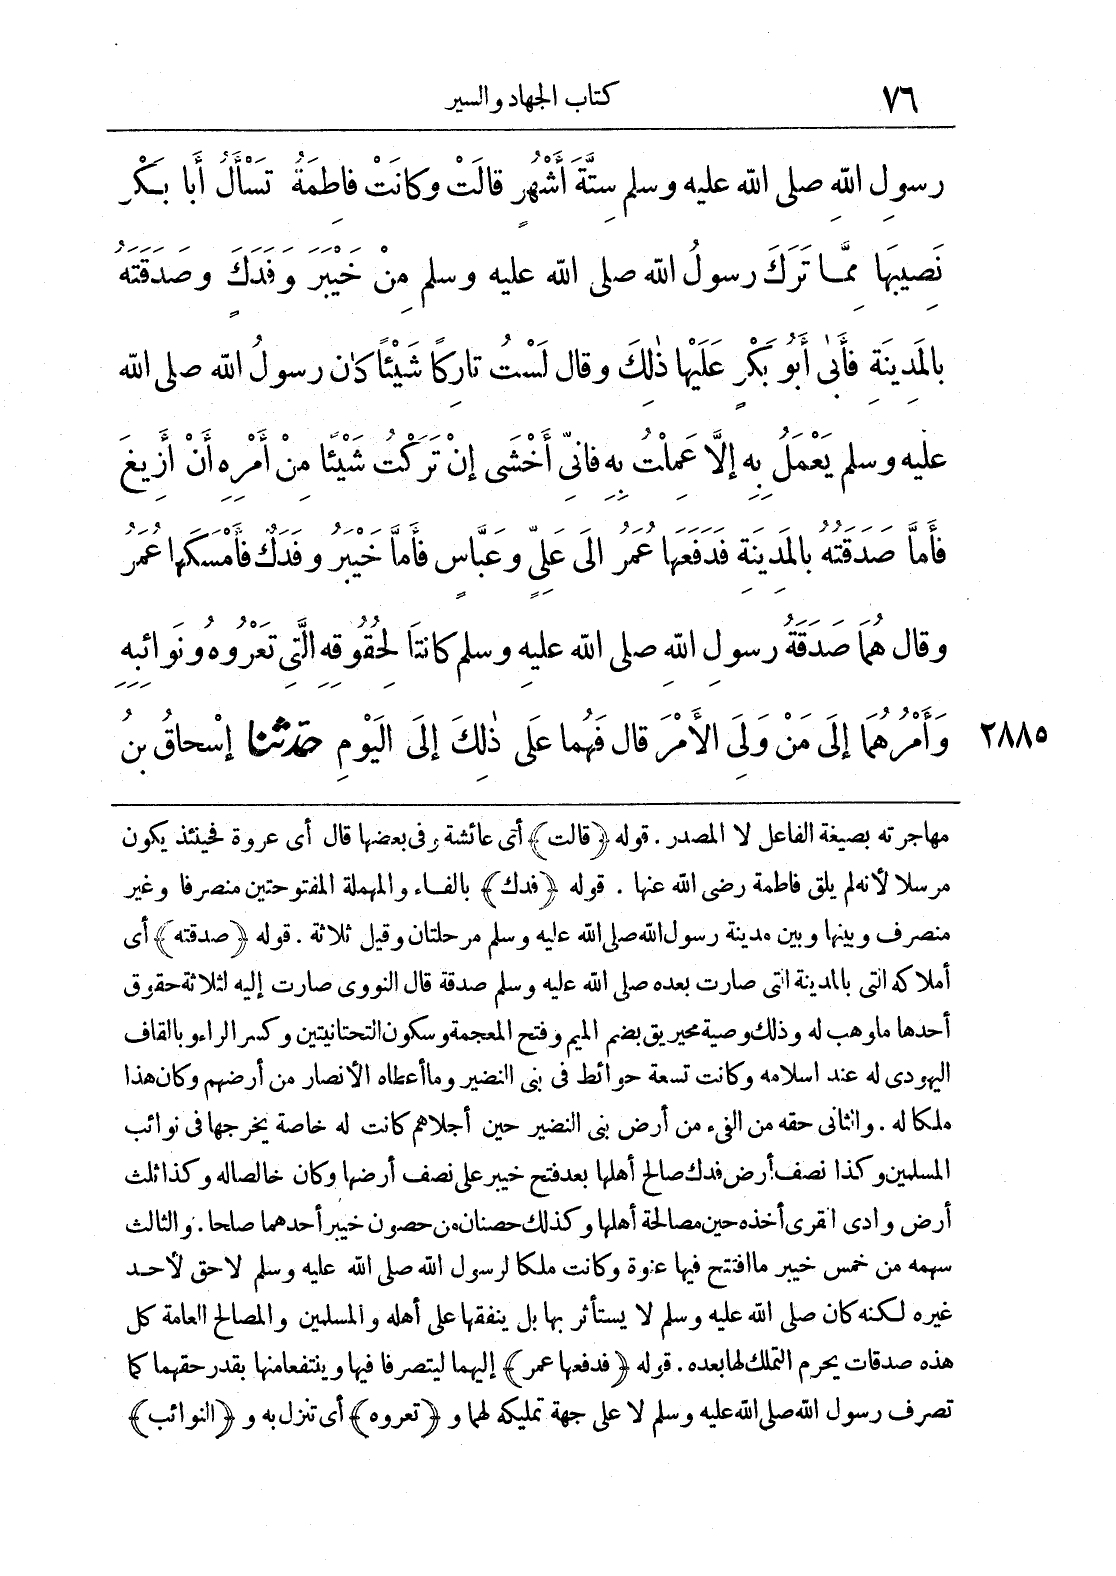 ٧٦ كتاب الجهاد والسير
رسولِ اللّهِ صلى اللّه عليه وسلم سِتَّةَ أَشْهُرٍ قالَتْ وكانَتْ فاطِمَةُ تَسْأَلُ أَبا بكرٍ
نَصِيبَهَا مِمَّا تَرَكَ رسولُ اللّه صلى اللّه عليه وسلم مِنْ خَيْبَرَ وَفَدَكٍ وصَدَقَتَهُ
بالمَدِينَةِ فأَبى أَبُو بَكْرٍ عَلَيْها ذٰلِكَ وقال لَسْتُ تارِكًا شَيْئًا كان رسولُ اللّه صلى اللّه
عليه وسلم يَعْمَلُ بِهِ إلَّا عَمِلْتُ بِهِ فانّى أَخْشَى إنْ تَرَكْتُ شَيْئًا مِنْ أَمْرِهِ أَنْ أَزِيغَ
فأَمَّا صَدَقَتُهُ بالمَدِينَةِ فدَفَعَها عُمَرُ الَى عَلِيٍّ وعَبَّاسٍ فأَمَّا خَيْبَرُ وفَدَكٌ فأَمْسَكها عُمَرُ
وقال هُمَا صَدَقَةُ رسولِ اللّهِ صلى اللّه عليه وسلم كانَتَا لِحُقُوقِهِ الَّتِى تَعْرُوهُ ونَوَائِبِهِ
وَأَمْرُهُمَا إلَى مَنْ وَلِىَ الأَمْرَ قال فَهُما علَى ذٰلِكَ إلَى اليَوْمِ حدّثنا إسْحاقُ بنُ ٢٨٨٥
مهاجرته بصيغة الفاعل لا المصدر. قوله ﴿قالت﴾ أى عائشة وفى بعضها قال أى عروة فحينئذ يكون
مرسلا لأنه لم يلق فاطمة رضى اللّه عنها. قوله ﴿فدك﴾ بالفاء والمهملة المفتوحتين منصرفا وغير
منصرف وبينها وبين مدينة رسول اللّه صلى اللّه عليه وسلم مرحلتان وقيل ثلاثة. قوله ﴿صدقته﴾ أى
أملاكه التى بالمدينة التى صارت بعده صلى اللّه عليه وسلم صدقة قال النووى صارت إليه لثلاثة حقوق
أحدها ماوهب له وذلك وصية مخيريق بضم الميم وفتح المعجمة وسكون التحتانيتين وكسر الراء وبالقاف
اليهودى له عند اسلامه وكانت تسعة حوائط فى بنى النضير وماأعطاه الأنصار من أرضهم وكان هذا
ملكا له. والثانى حقه من الفىء من أرض بنى النضير حين أجلاهم كانت له خاصة يخرجها فى نوائب
المسلمين وكذا نصف أرض فدك صالح أهلها بعد فتح خيبر على نصف أرضها وكان خالصا له وكذا ثلث
أرض وادى القرى أخذه حين مصالحة أهلها وكذلك حصنان من حصون خيبر أحدهما صلحا. والثالث
سهمه من خمس خيبر ماافتتح فيها عنوة وكانت ملكا لرسول اللّه صلى اللّه عليه وسلم لا حق لأحد
غيره لكنه كان صلى اللّه عليه وسلم لا يستأثر بها بل ينفقها على أهله والمسلمين والمصالح العامة كل
هذه صدقات يحرم التملك لها بعده. قوله ﴿فدفعها عمر﴾ إليهما ليتصرفا فيها وينتفعا منها بقدر حقهما كما
تصرف رسول اللّه صلى اللّه عليه وسلم لا على جهة تمليكه لهما و﴿تعروه﴾ أى تنزل به و﴿النوائب﴾